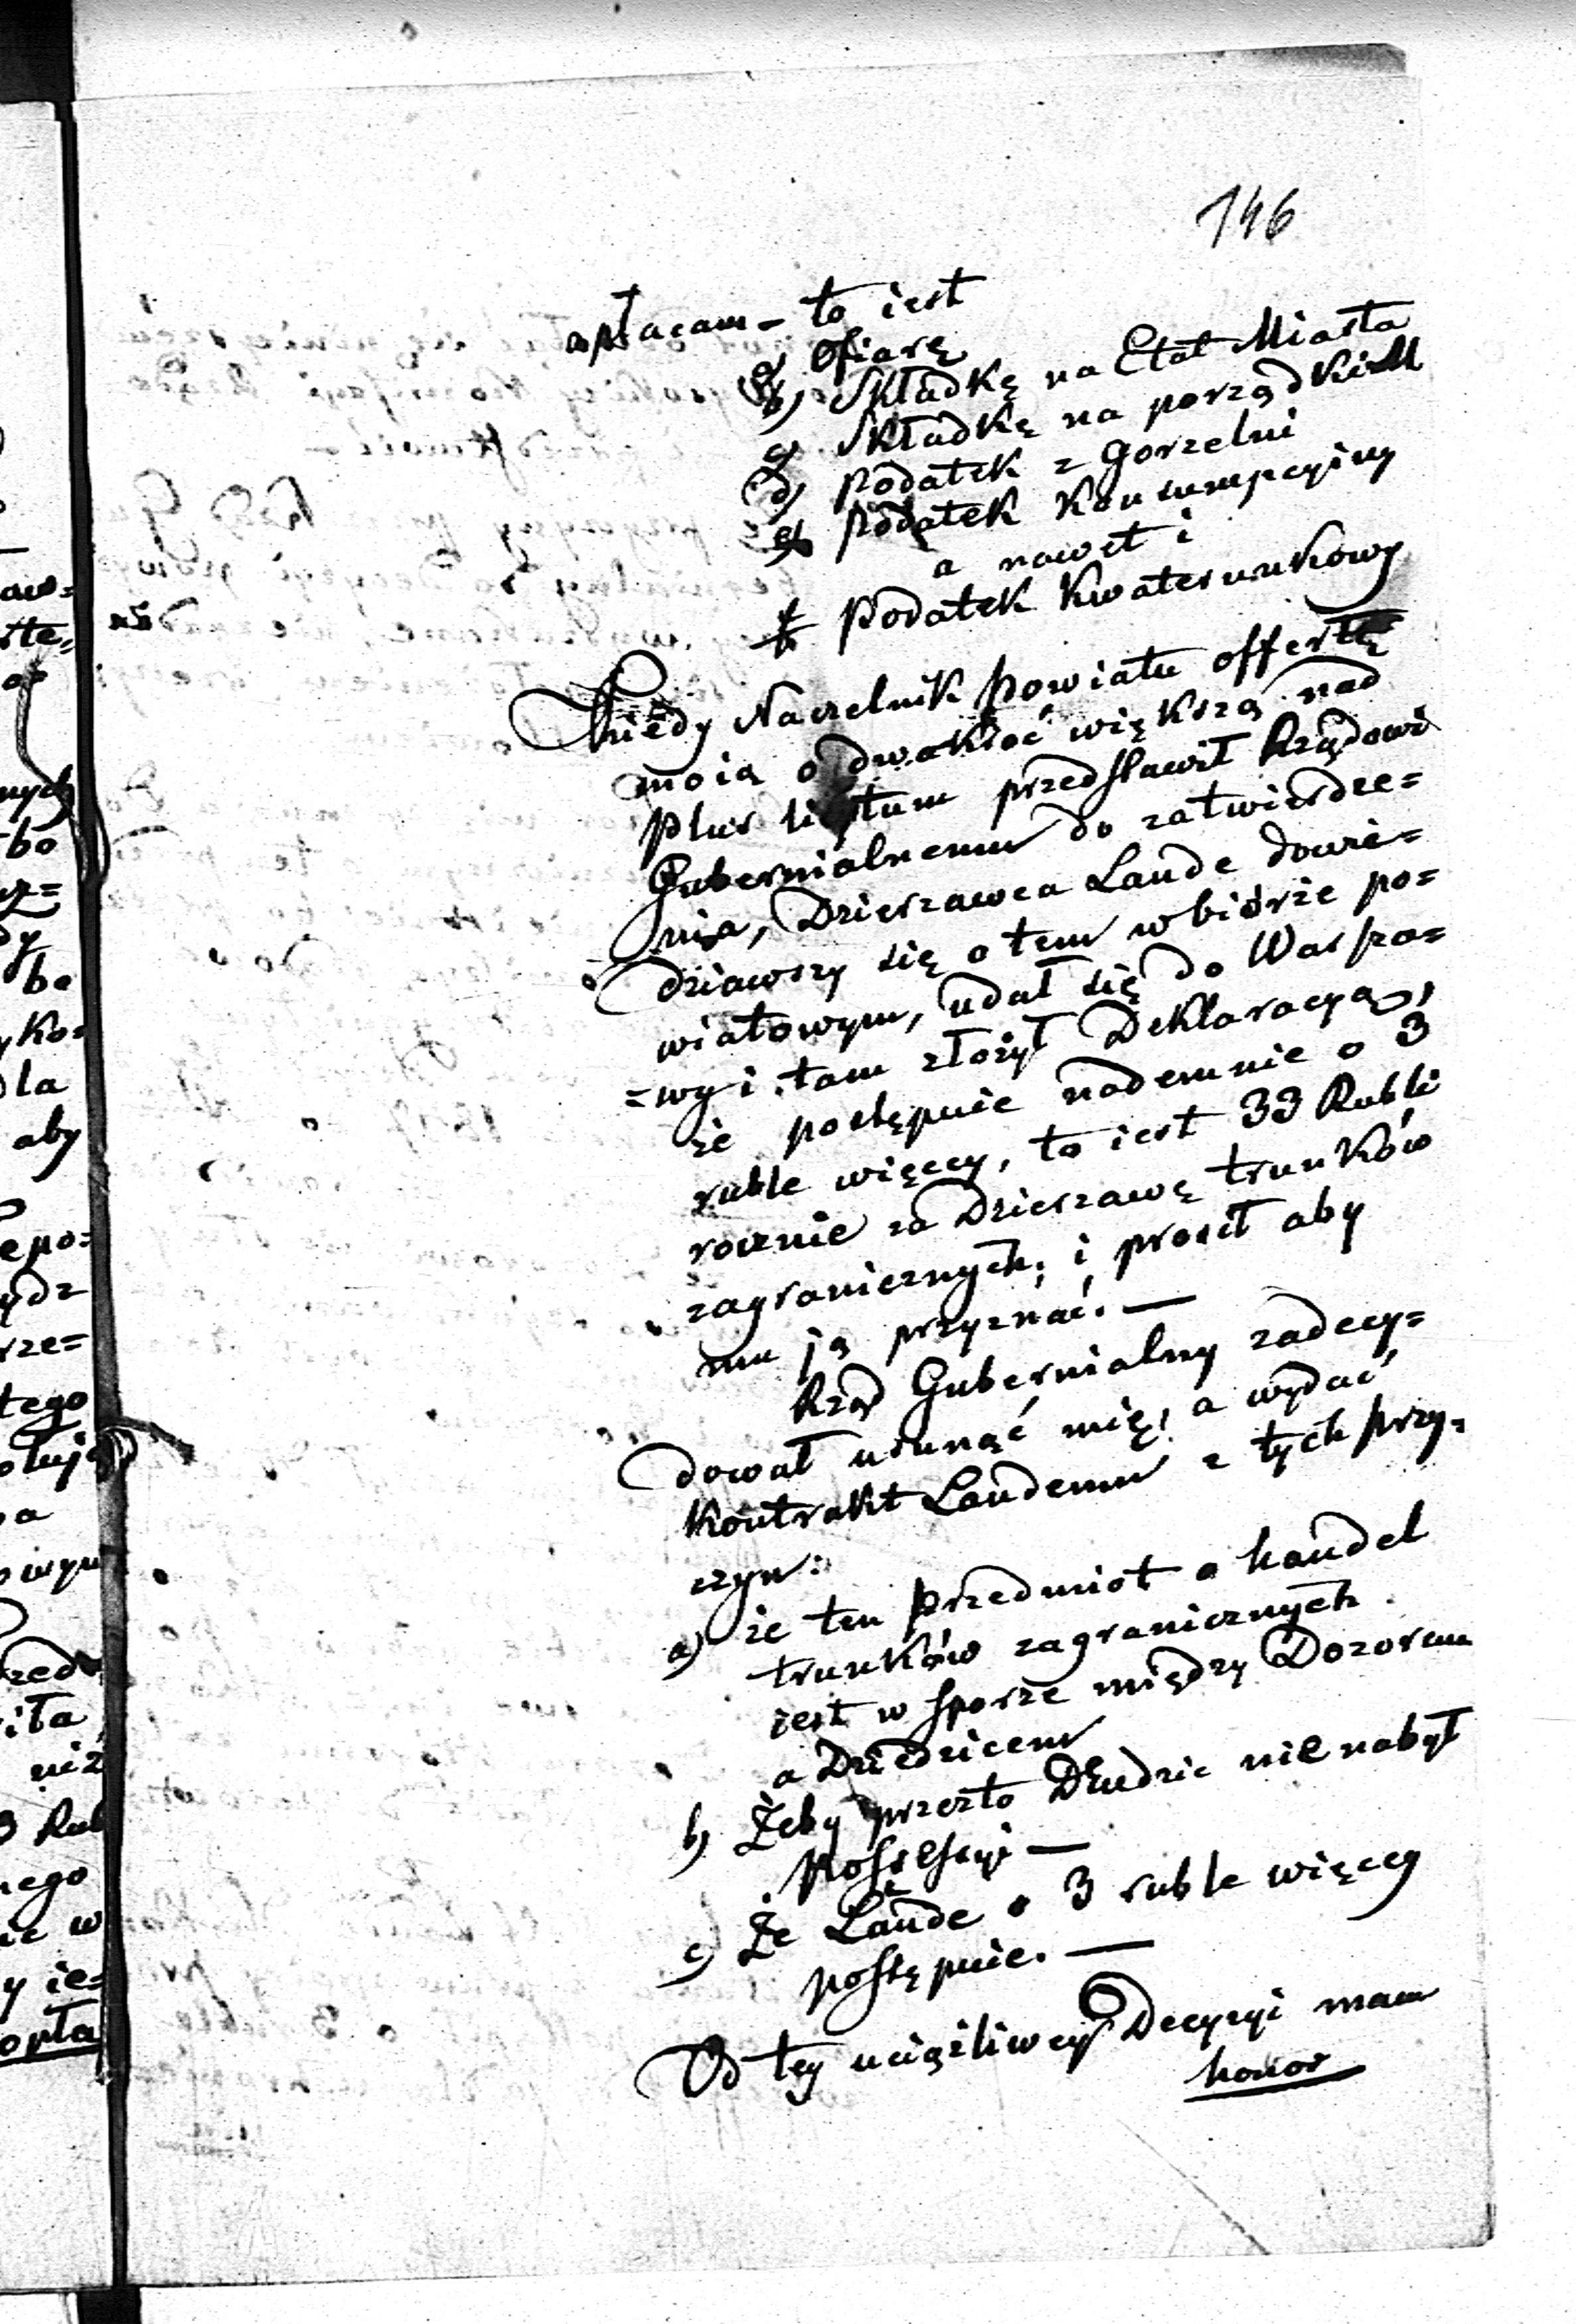 146
opłacam – to iest
a) Ofiarę
b) Składkę na Etat Miasta
c) Składkę na porządki M
d) podatek z Gorzelni
e) podatek konsumpcyiny
a nawet i
f podatek kwaterunkowy
Kiedy Naczelnik Powiatu offertę
moią o dwakroć większą nad
plus licitum przedstawił Rządowi
Gubernialnemu do zatwierdze=
nia, Dzierzawca Laude dowie=
dziawszy się o tem w biórze po=
wiatowym, udał się do Warsza=
=wy i tam złożył Deklaracyą,
że postępuie nademnie o 3
ruble więcey, to iest 33 Rubli
rocznie za Dzierzawę trunków
zagranicznych; i prosił aby
mu ją przyznać. —
Rząd Gubernialny zadecy=
dował usunąć mię, a wydać
Kontrakt Laudemu z tych przy=
czyn:
a) że ten przedmiot o handel
trunków zagranicznych
iest w sporze między Dozorem
a Dziedzicem
b) Żeby przezto Dziedzic nie nabył
possessyi —
c) Że Laude o 3 ruble więcey
postępuie. —
Od tey uciążliwey Decyzyi mam
honor